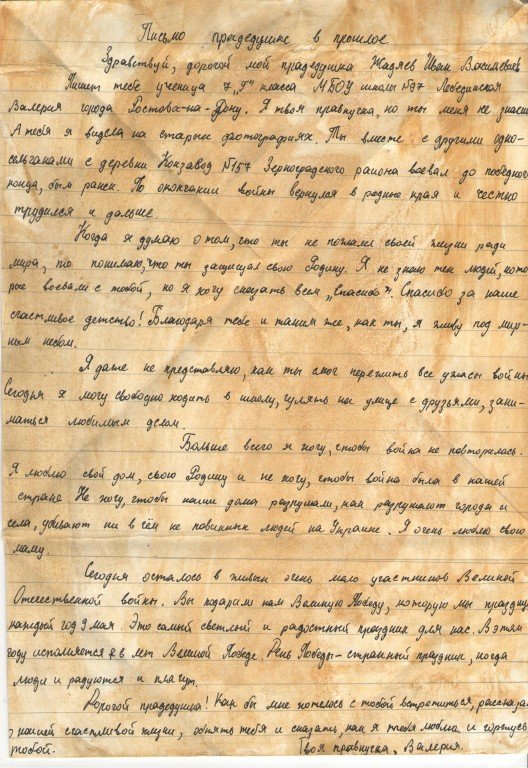 Письмо прадедушке в прошлое.
Здравствуй, дорогой мой прадедушка Жадяев Иван Васильевич
Пишет тебе ученица 7 „Г" класса МБОУ школы №97 Лебединская
Валерия города Ростова-на-Дону. Я твоя правнучка, но ты меня не знаешь
А тебя я видела на старых фотографиях. Ты вместе с другими одно-
сельчанами с деревни Конзавод №157 Зерноградского района воевал до победного
конца, был ранен. По окончании войны вернулся в родные края и честно
трудился и дальше.
Когда я думаю о том, что ты не пожалел своей жизни ради
мира, то понимаю, что ты защищал свою Родину. Я не знаю тех людей, кото
рые воевали с тобой, но я хочу сказать всем „Спасибо". Спасибо за наше
счастливое детство! Благодаря тебе и таким же, как ты, я живу под мир-
ным небом.
Я даже не представляю, как ты смог пережить все ужасы войны
Сегодня я могу свободно ходить в школу, гулять на улице с друзьями, зани-
маться любимым делом.
Больше всего я хочу, чтобы война не повторилась.
Я люблю свой дом, свою Родину и не хочу, чтобы война была в нашей
стране. Не хочу, чтобы наши дома разрушали, как разрушают города и
села, убивают ни в чём не повинных людей на Украине. Я очень люблю свою
маму.
Сегодня осталось в живых очень мало участников Великой
Отечественной войны. Вы подарили нам Великую Победу, которую мы праздну
каждый год 9 мая. Это самый светлый и радостный праздник для нас. В этом
году исполняется лет Великой Победе. День Победы - странный праздник, когда
люди и радуются и плачут.
Дорогой прадедушка! Как бы мне хотелось с тобой встретиться, рассказа
о нашей счастливой жизни, обнять тебя и сказать, как я тебя люблю и горжусь
тобой. Твоя правнучка, Валерия.